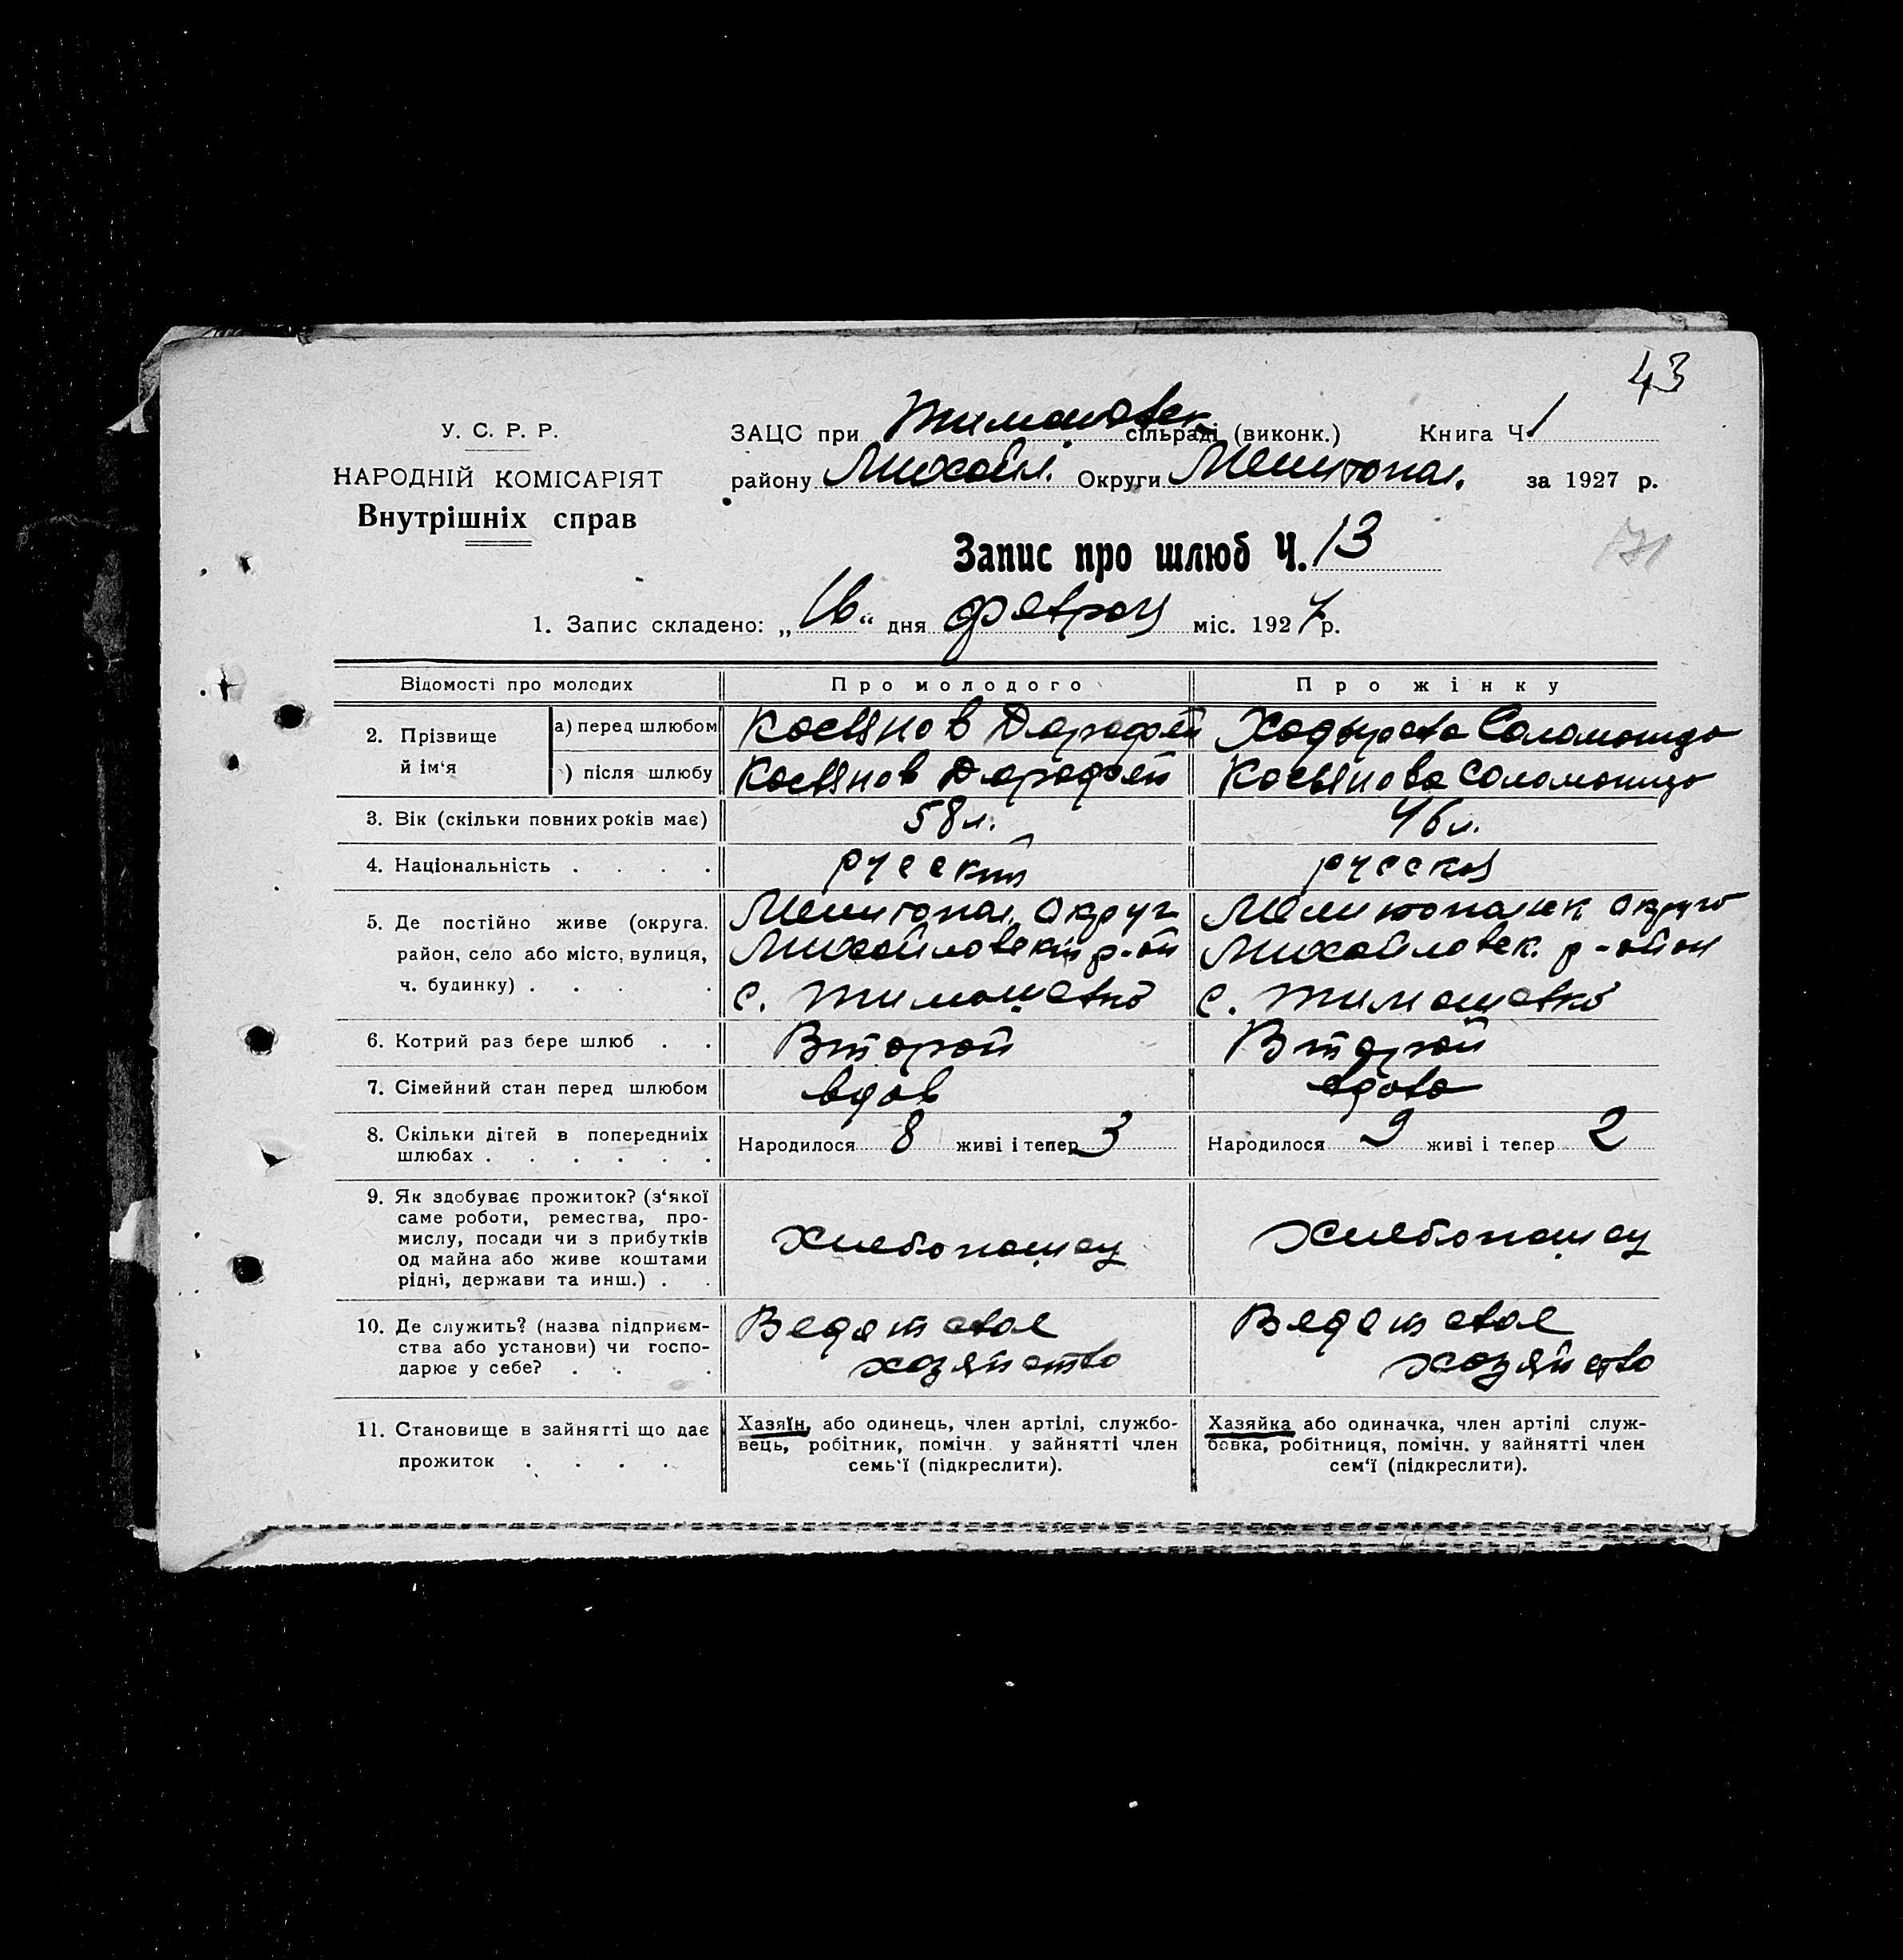 43
У. С. Р. Р.
НАРОДНІЙ КОМІСАРІЯТ
Внутрішніх справ
ЗАЦС при Тимашовск сільраді (виконк.) Книга Ч. 1
району Михайл. Округи Мелитопол. за 1927 р.
Запис про шлюб Ч. 13
1. Запис складено: „16“ дня февраля міс. 1927 р.
Відомості про молодих Про молодого Про жінку
2. Прізвище й ім‘я
а) перед шлюбом Косянов Дарафей Ходырева Саломонида
) після шлюбу Косянов Дарафей Косянова Саломонида
3. Вік (скільки повних років має) 58 л. 46 л.
4. Національність . . . . русский русская
5. Де постійно живе (округа, Мелитопол. округ Мелитопольск округ
район, село або місто, вулиця, Михайловский р-он Михайловск. р-айон
ч. будинку) . . . . с. Тимошевка с. Тимошевка
6. Котрий раз бере шлюб . . Второй Второй
7. Сімейний стан перед шлюбом вдов вдова
8. Скільки дітей в попередниіх Народилося 8 живі і тепер 3 Народилося 9 живі і тепер 2
шлюбах . . . . . .
9. Як здобуває прожиток? (з‘якої
саме роботи, ремества, про-
мислу, посади чи з прибутків Хлебопашец Хлебопашец
од майна або живе коштами
рідні, держави та инш.) . .
10. Де служить? (назва підприєм- Ведет свое Ведет свое
ства або установи) чи госпо- хозяйство хозяйство
дарює у себе? . . .
11. Становище в зайнятті що дає
прожиток . . . .
Хазяїн, або одинець, член артілі, службо-
вець, робітник, помічн. у зайнятті член
семь‘ї (підкреслити).
Хазяйка або одиначка, член артілі служ-
бовка, робітниця, помічн. у зайнятті член
сем‘ї (підкреслити).